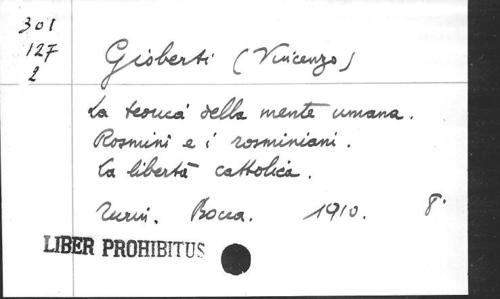 301
127
2
Gioberti (Vincenzo)
La teorica della mente umana.
Rosmini e i rosminiani.
La libertà cattolica.
Turin. Bocca. 1910. 8°
LIBER PROHIBITUS